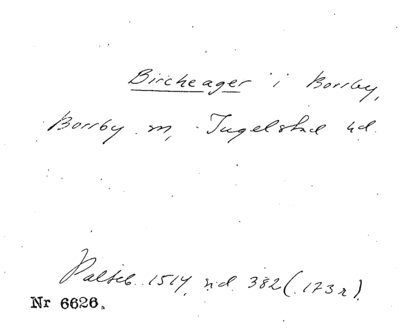 Bircheager i Borrby,
Borrby sn, Ingelstad hd.
Palteb. 1514, sid. 382 (173 r).
Nr 6626.